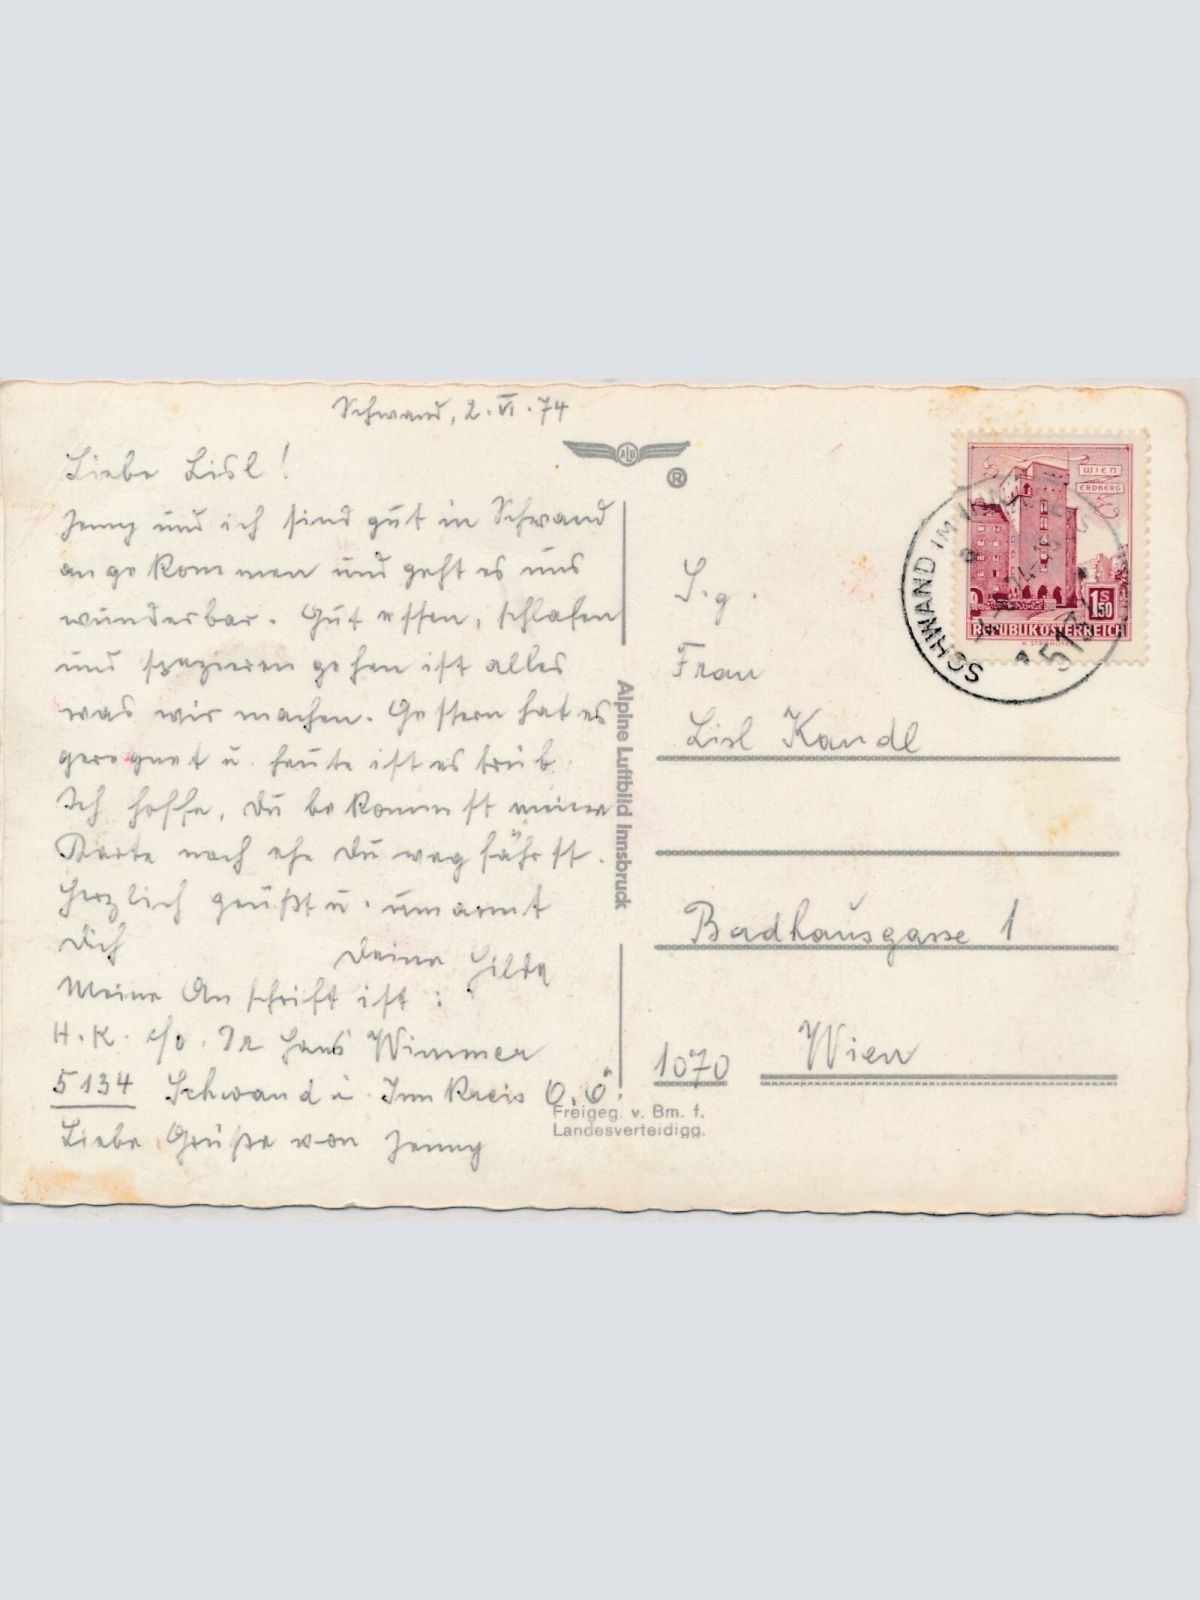 Schwand, 2. VI. 74
Liebe Lisl!
Jenny und ich sind gut in Schwand
angekommen und geht es uns
wunderbar. Gut essen, schlafen
und spazieren gehen ist alles
was wir machen. Gestern hat es
geregnet u. heute ist es trüb.
Ich hoffe, Du bekommst meine
Karte noch ehe Du weg fährst.
Herzlich grüßt u. umarmt
Dich
Deine Hilda
Meine Anschrift ist:
H. K. c/o. Dr Hans Wimmer
5134 Schwand i. Innkreis O.Ö.
Liebe Grüße von Jenny
ALB
®
Alpine Luftbild Innsbruck
Freigeg. v. Bm. f.
Landesverteidigg.
WIEN
ERDBERG
1 S 50
REPUBLIK ÖSTERREICH
SCHWAND IM INNKREIS
5134
S. g.
Frau
Lisl Kandl
Badhausgasse 1
1070 Wien